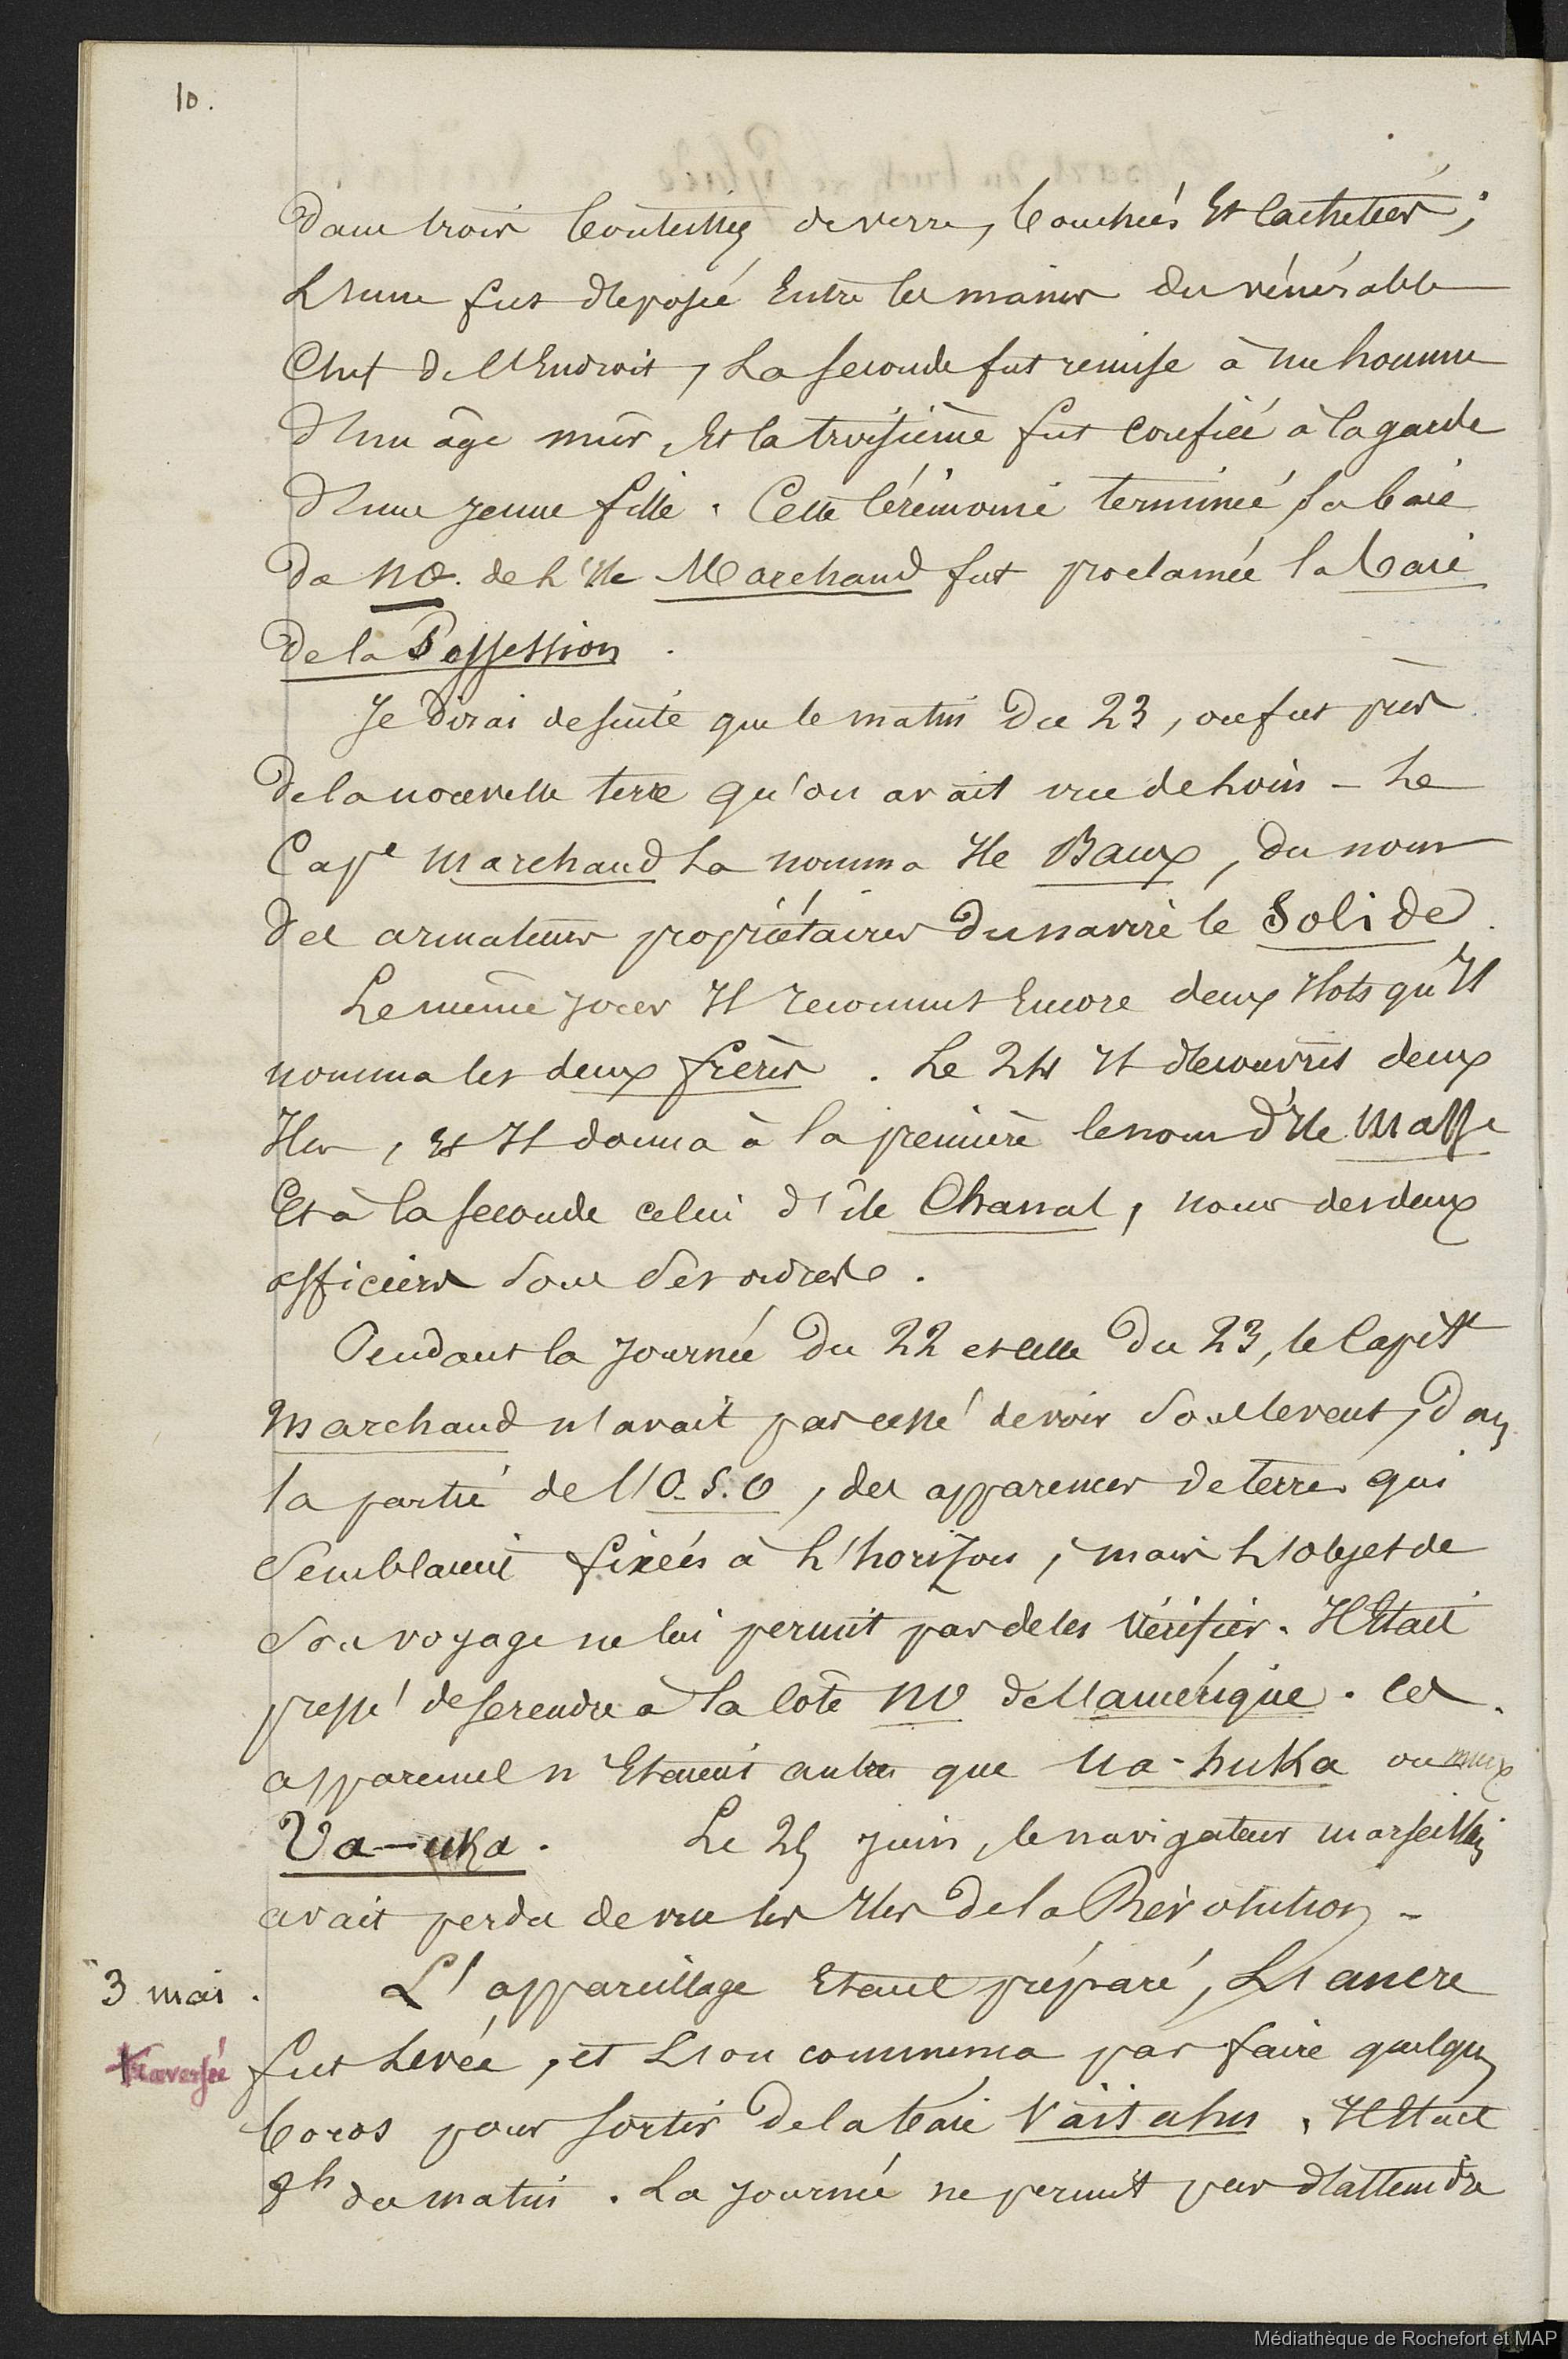 10.
dans trois bouteilles de verre, bouchées Et cachetées;
L'une fut déposée Entre les mains du vénérable
Chef de l'Endroit, La seconde fut remise à un homme
d'un âge mûr, Et la troisième fut confiée à la garde
d'une jeune fille. Cette Cérémonie terminée, la baie
du NO. de L'Ile Marchand fut proclamée la baie
de la Possession.
Je dirai de suite que le matin du 23, on fut près
de la nouvelle terre qu'on avait vue de loin - Le
Cape Marchand La nomma Ile Baux, du nom
des armateurs propriétaires du navire le Solide.
Le même jour Il reconnut Encore deux Ilots qu'Il
nomma les deux frères. Le 24 Il découvrit deux
Iles, Et Il donna à la première le nom d'Ile Masse
Et à la seconde celui d'île Chanal, noms des deux
officiers sous ses ordres.
Pendant la journée du 22 et celle du 23, le Capit
Marchand n'avait pas cessé de voir sous le vent, dans
la partie de l'O.S.O, des apparences de terre qui
semblaient fixées à L'horizon, mais L'objet de
son voyage ne lui permit pas de les vérifier. Il Etait
pressé de se rendre à la côte NO de l'amérique. Ces
apparences n'Etaient autres que Ua-huka ou mieux
Ua-uka. Le 25 juin, le navigateur marseillais
avait perdu de vue les Iles de la Révolution -
3 mai.
L'appareillage Etant préparé, L'ancre
traversée
fut Levée, et L'on commença par faire quelques
bords pour sortir de la baie Vaitahu. Il Etait
8h du matin. La journée ne permit pas d'attendre
Médiathèque de Rochefort et MAP